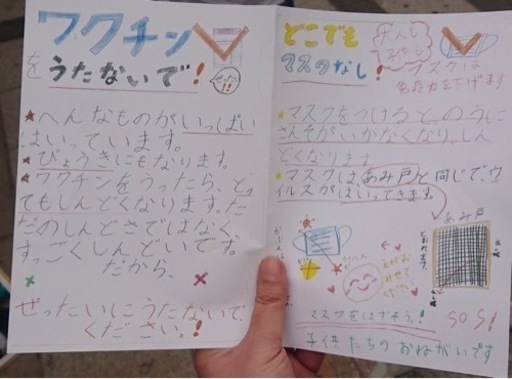 ワクチン
を うたないで!
ぜったい!!
★へんなものがいっぱい
はいっています。
★びょうきにもなります。
★ワクチンをうったら、とっ
てもしんどくなります。た
だのしんどさではなく、
すっごくしんどいです。
だから、
ぜったいにうたないで
ください。!
どこでも
マスクなし!
大人も
子供も
マスクは
免疫力を下げます
★マスクをつけるとのうに
さんそがいかなくなり、しん
どくなります
★マスクは、あみ戸と同じで、ウ
イルスがはいってきます。
あみ戸
ウイルス
えがお
みせて
ください
マスクをはずそう!
SOS!
子供たちのおねがいです